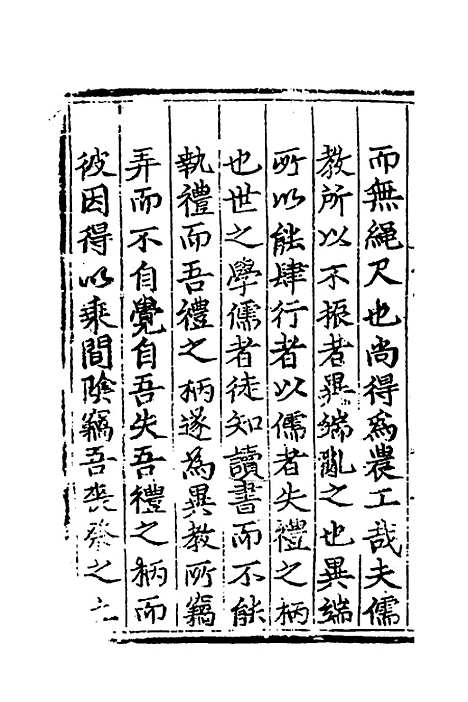 而無繩尺也尚得為農工哉夫儒
教所以不振者異端亂之也異端
所以能肆行者以儒者失禮之柄
也世之學儒者徒知讀書而不能
執禮而吾禮之柄遂為異教所竊
弄而不自覺自吾失吾禮之柄而
彼因得以乗間陰竊吾喪祭之